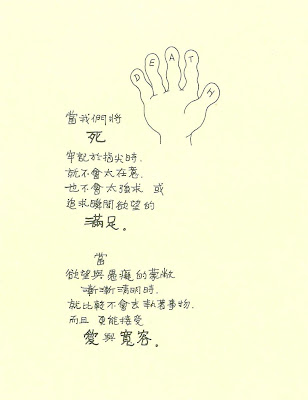 D E A T H
當我們將
死
牢記於指尖時.
就不會太在意.
也不會太強求 或
追求瞬間欲望的
滿足。
當
欲望與愚癡的蒙敝
漸漸清明時.
就比較不會去執著事物.
而且 更能接受
愛與寬容。